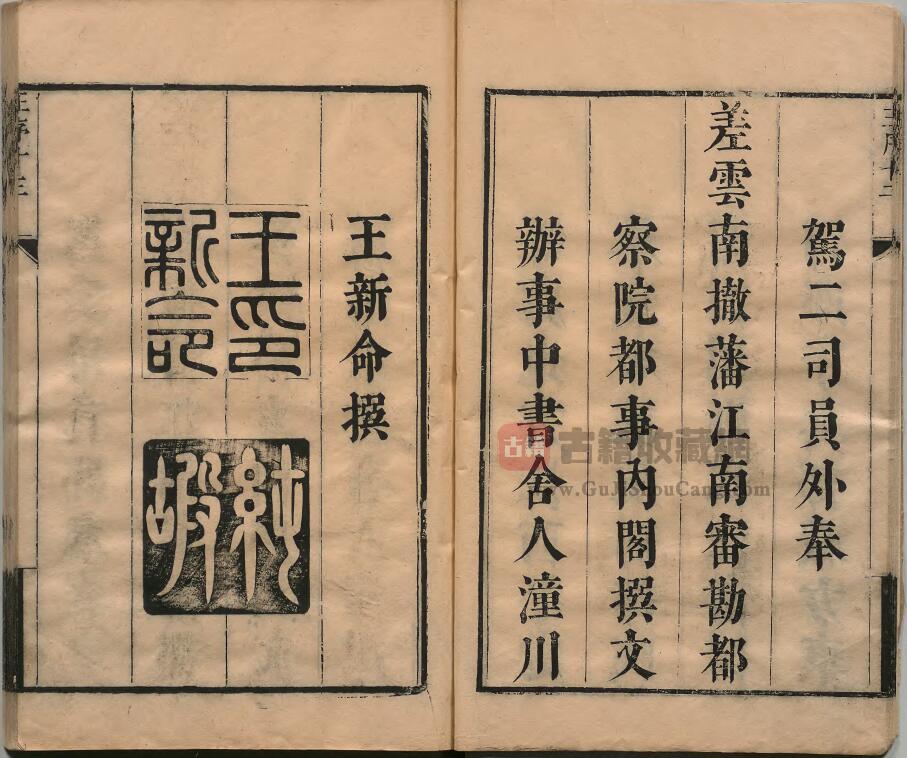 駕二司員外奉
差雲南撤藩江南審勘都
察院都事內閣撰文
辦事中書舍人潼川
王新命撰
王印新命
純嘏
王序十二
王序十三
古籍
古籍收藏網
www.GuJiShouCang.com